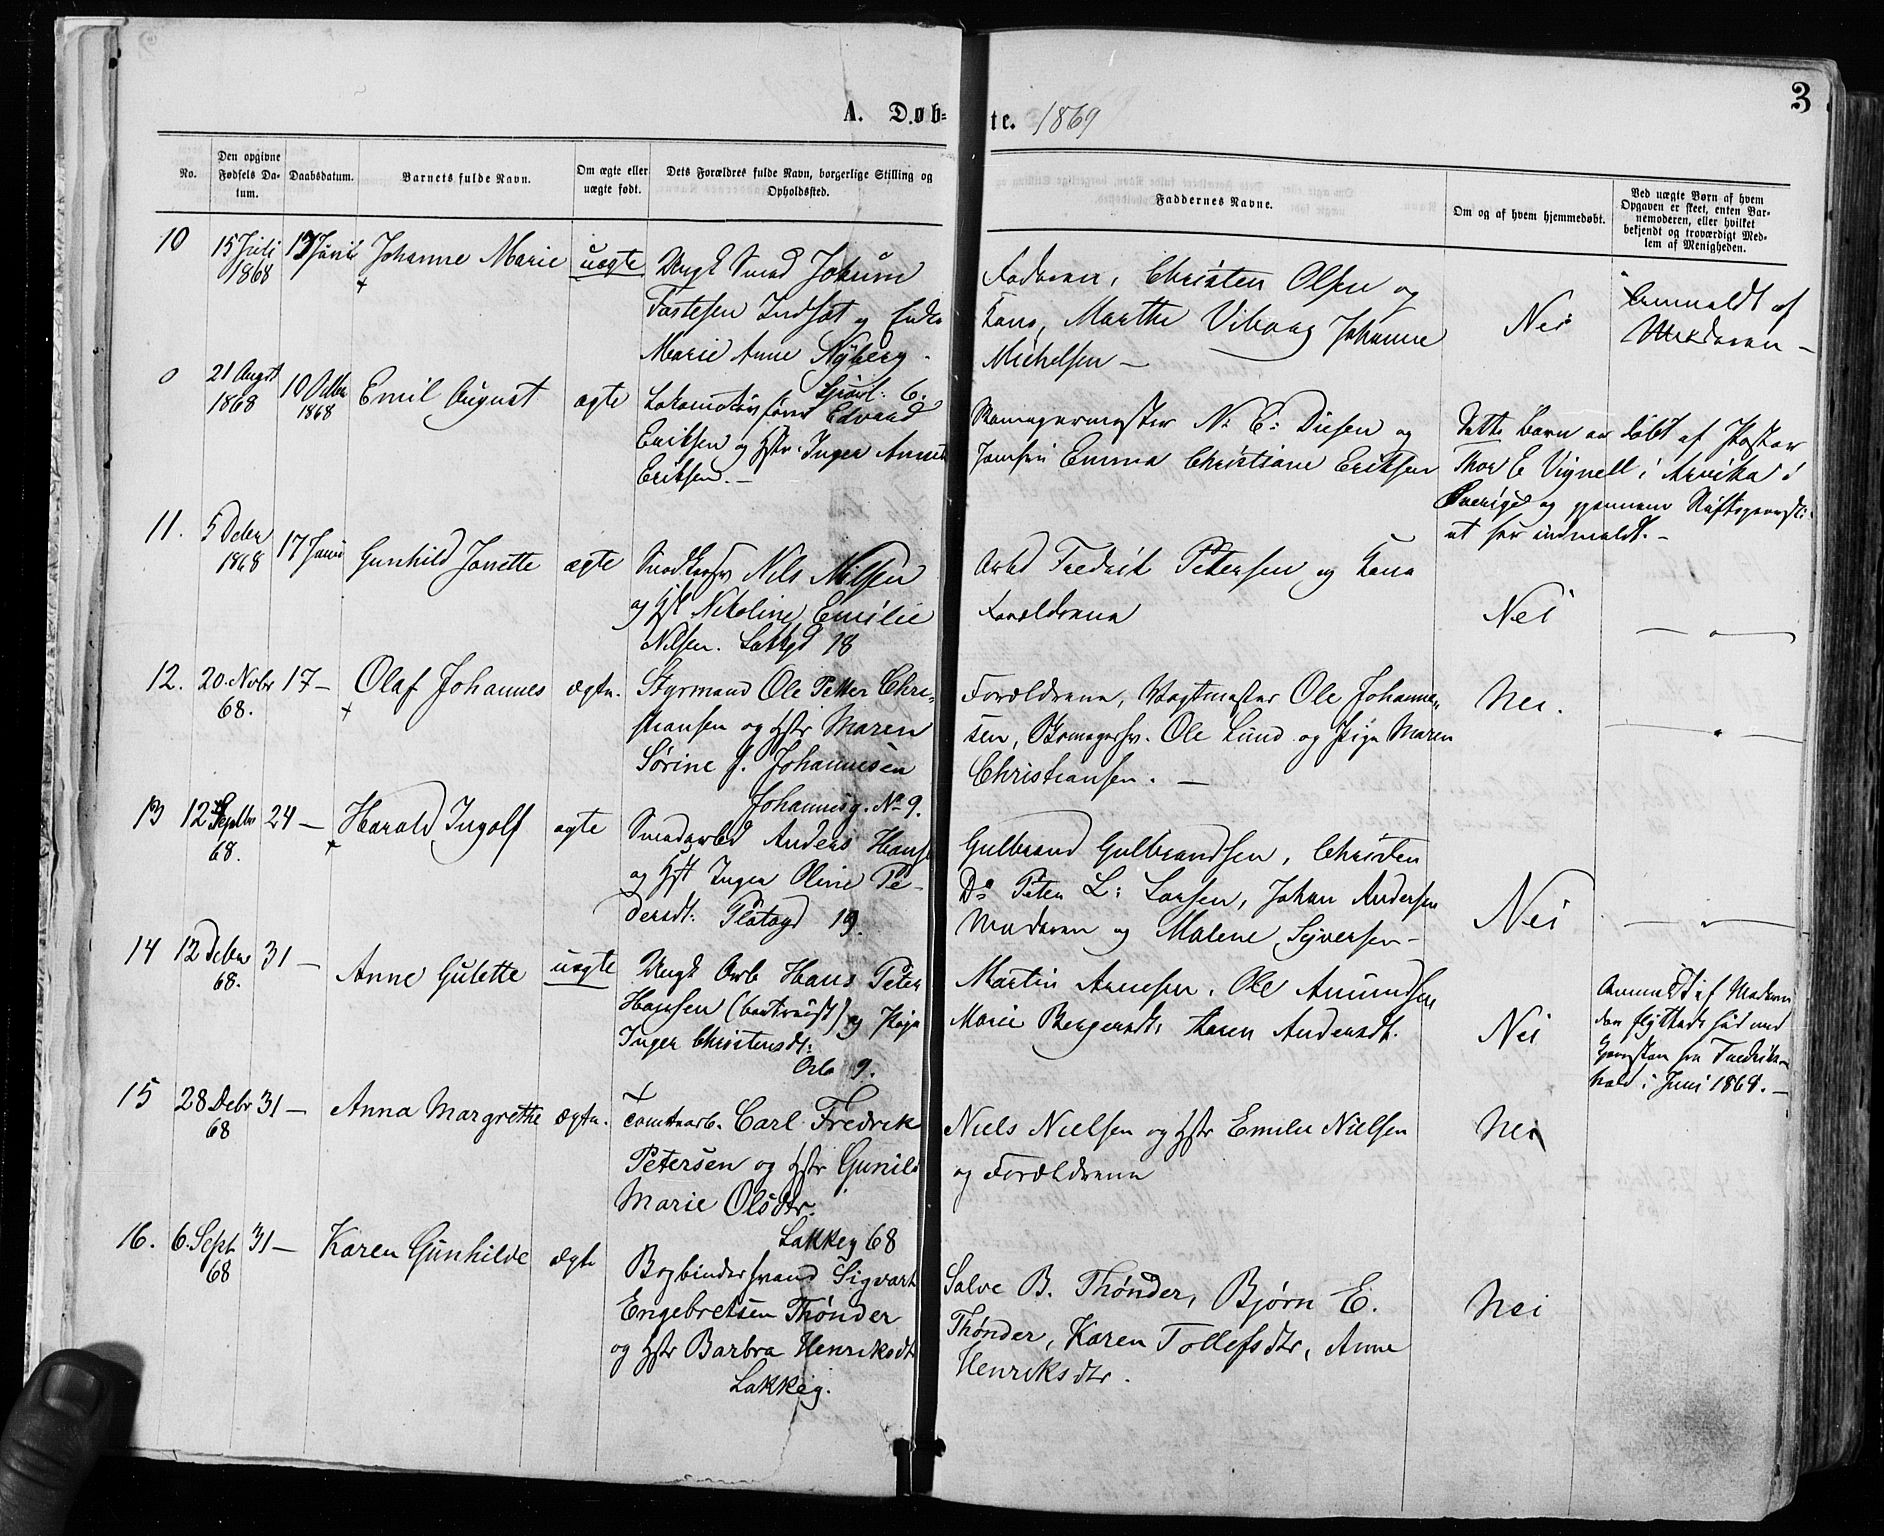 3
A. Døb-
te. 1869
No.
Den opgivne Fødsels Da-tum.
Daabsdatum.
Barnets fulde Navn.
Om ægte eller uægte født.
Dets Forældres fulde Navn, borgerlige Stilling og Opholdssted.
Faddernes Navne.
Om og af hvem hjemmedøbt.
Ved uægte Børn af hvem Opgaven er skeet, enten Bar-nemoderen, eller hvilket bekjendt og troværdigt Med-lem af Menigheden.
10
15 Juli
1868
Johanne Marie
uægte
Ungk Smed Jokum
Marie Anne Nyberg.
Faderen, Christen Olsen og
Kone, Marthe Viborg Johanne
Michelsen —
Nei
Anmeldt af
Moderen —
0
21 Augst
1868
10 Octbr
1868
Emil August
ægte
Lokomotivfører Edvard
Eriksen og Hstr Inger
Eriksen. —
Skomagermester N. E. og
Jomfru Emma Christiane Eriksen
Dette Barn er døbt af Pastor
Thor E Vignell i Arvika i
Sverige og gjennem
at her indmeldt. —
11.
5 Debr
1868
17 Janr
Gunhild Janette
ægte
Nils Nilsen
og Hst Nikoline Emilie
Nilsen. Lakkgd 18
Arbd Fredrik Petersen og Kone
Forældrene
Nei
— " —
12.
20. Novbr
68.
17 —
Olaf Johannes
ægte.
Styrmand Ole Petter Chri-
stiansen og Hstr Maren
Sørine f. Johannesen
Johannesg. No 9.
Forældrene, Vagtmester Ole Johanne-
sen, Skomagersv. Ole Lund og Pige Maren
Christiansen. —
Nei.
— " —
13
12 Septbr
68.
24 —
Harald Ingolf
ægte
Smedarbd Anders Hans
og Hst Inger Oline Pe-
dersdt: Platogd 19.
Gulbrand Gulbrandsen, Christen
Do Peter L: Larsen, Johan Andersen
Moderen og Malene Syversen —
Nei
— " —
14
12 Debr
68.
31 —
Anne Gulette
uægte
Ungk Arb Hans Peter
Hansen (bortreist) og Pige
Inger Christensdt:
9.
Martin Arnesen. Ole Amundsen
Marie Bergersdt: Karen Andersdt.
Nei
Anmeldt af Moderen
den flyttede hid med
Fredriks-
hald i Juni 1868. —
15
28 Debr
68
31 —
Anna Margrethe
ægte.
Tomtearb. Carl Fredrik
Petersen og Hstr Gunild
Marie Olsdtr.
Lakkeg 68
Niels Nielsen og Hstr Emilie Nielsen
og Forældrene
Nei
16.
6. Sept
68
31 —
Karen Gunhilde
ægte
Bogbindersvend Sigvart
Engebretsen Thønder
og Hstr Barbra Henriksdtr
Lakkeg.
Salve B. Thønder, Bjørn E.
Thønder, Karen Tollefsdtr, Anne
Henriksdtr.
Nei